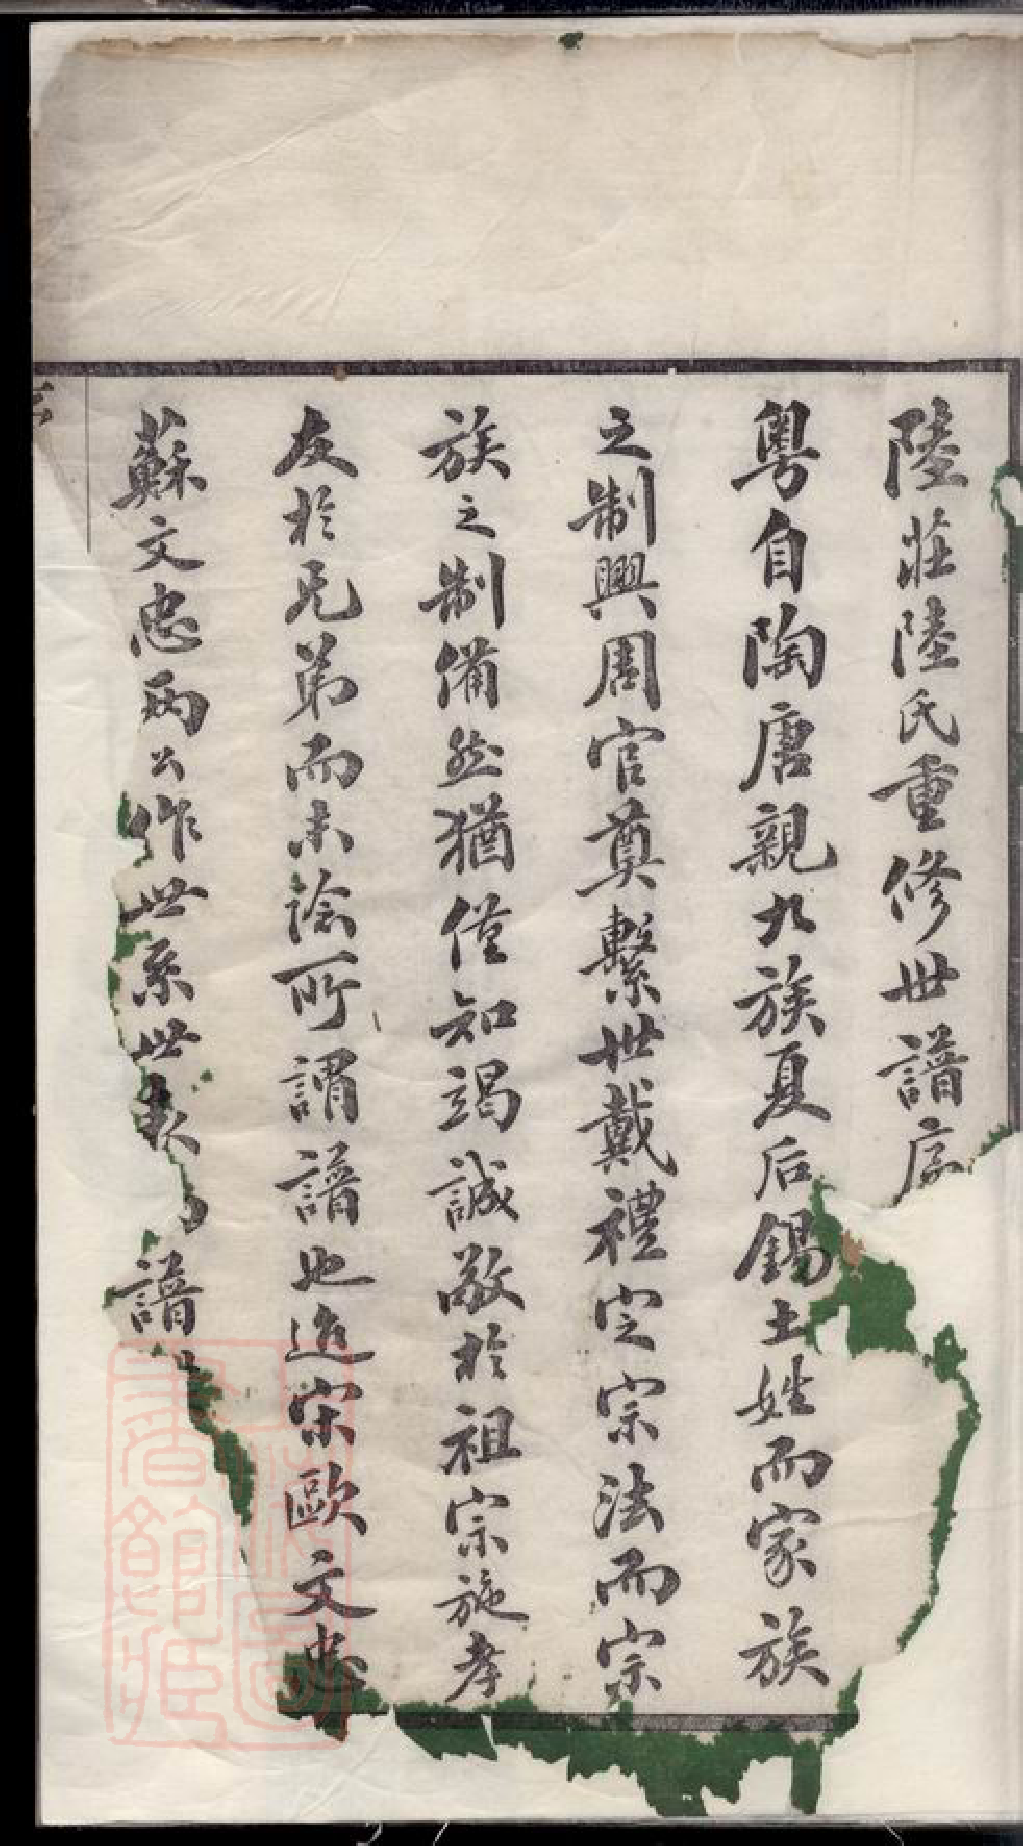 陸莊陸氏重修世譜序
粵自陶唐親九族夏后錫土姓而家族
之制興周官奠繫世戴禮定宗法而宗
族之制備然猶僅知竭誠敬於祖宗施孝
友於兄弟而未諗所謂譜也迨宋歐文忠
蘇文忠兩公作世系世表譜